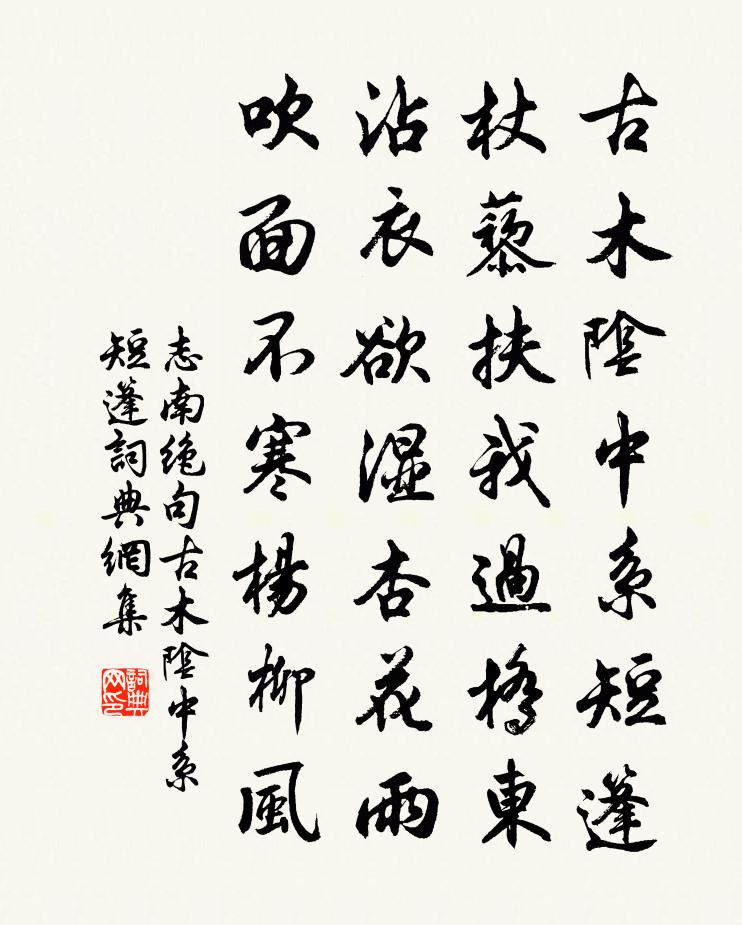 古木陰中系短篷
杖藜扶我過橋東
沾衣欲湿杏花雨
吹面不寒楊柳風
志南絶句古木陰中系
短篷詞典網集
詞典
网印